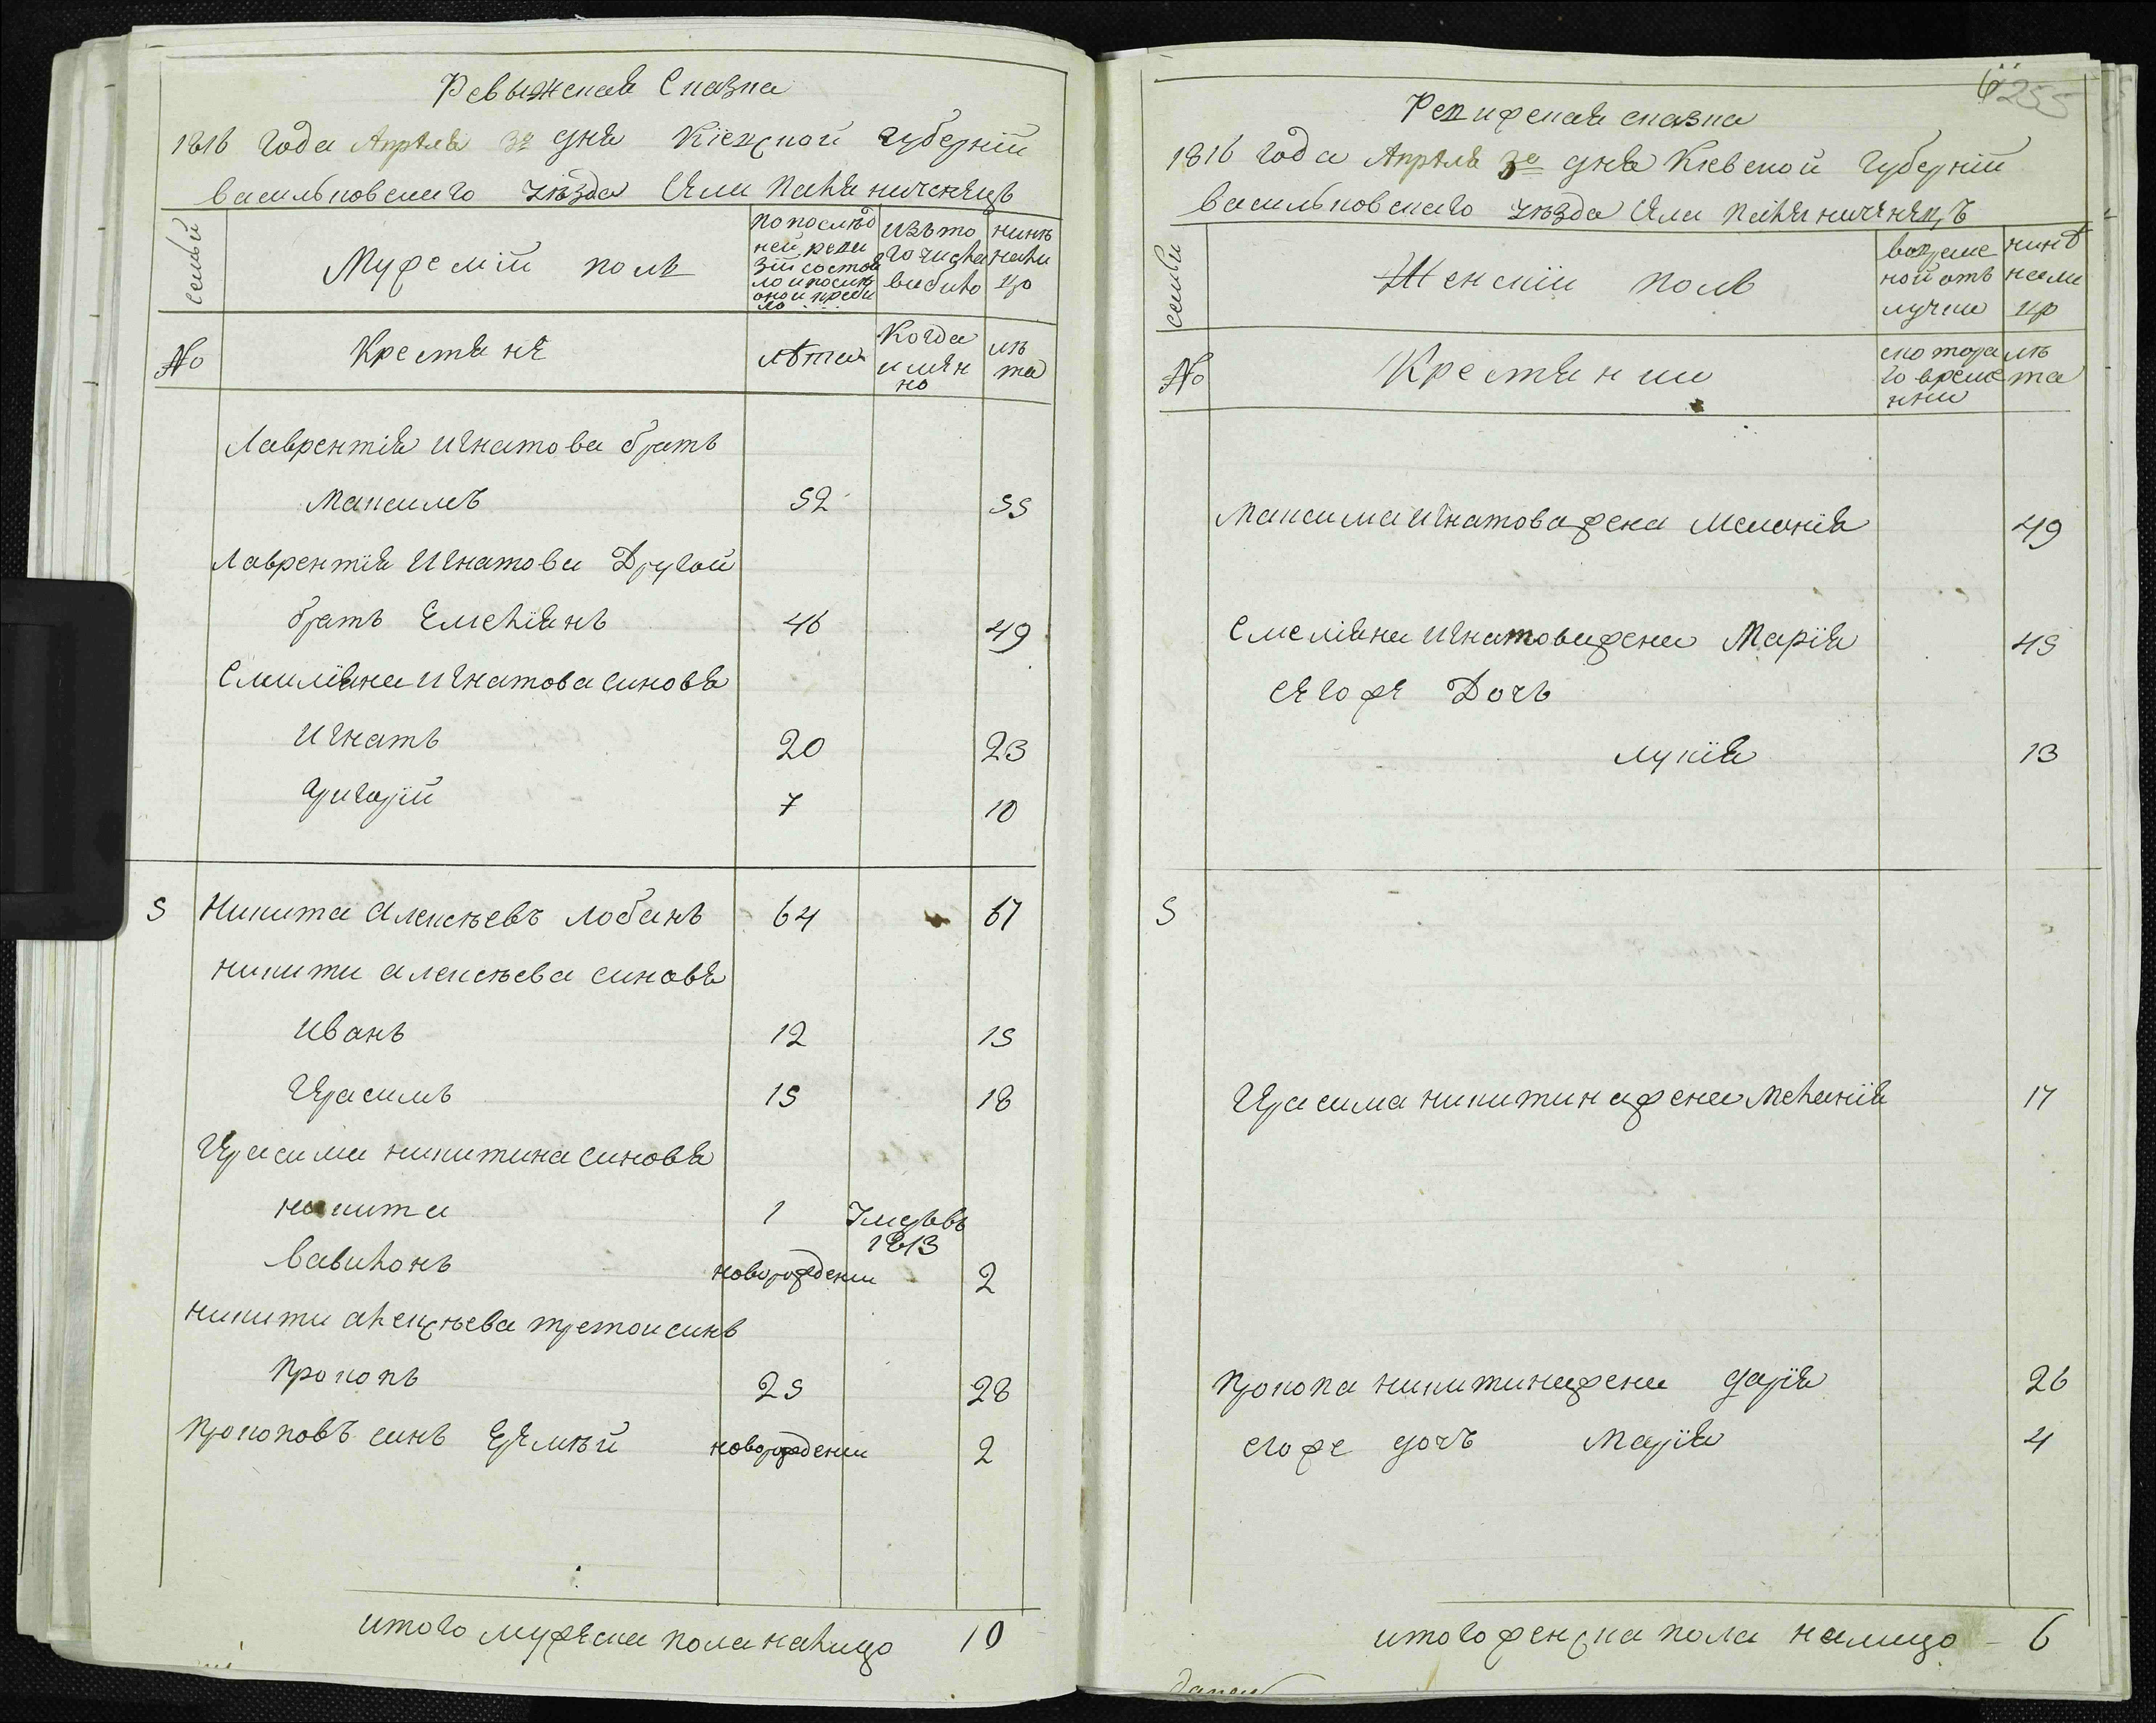 Ревыжская Сказка
1816 года Апреля 3го дня Кіевской губерніи
васильковского уѣзда Села Паляничинець
семьи
Мужескій поль
по послѣд
ней реви
зіи состоя
ло и послѣ
оной приби
ло
изъ то
го числа
выбыло
нинѣ
нали
цо
№
Крестяне
лѣта
Когда
имен
но
лѣ
та
Лаврентія игнатова брать
Максимъ 52 55
Лаврентія Игнатова Другой
брать Емеліянь 46 49
Емиліяна игнатова синовя
игнать 20 23
григорій 7 10
5 Никита Алексѣевъ лобань 64 67
никити алексѣева синовя
ивань 12 15
Герасимъ 15 18
Герасима никитина синовя
никита 1 Умерьвь 1813
вавилонь новорожденни 2
никити алексѣева третои синь
Прокопь 25 28
Прокоповъ синь Еремѣй новорожденни 2
итого мужеска пола налицо 10
255
Ревижская сказка
1816 года Апреля 3го дня Киевской губерніи
васильковскаго уѣзда Села Паляничинецъ
семьи
Женскій поль
вовреме
ной отъ
лучки
нинѣ
нали
цо
№
Крестянки
с котора
го време
нни
лѣ
та
Максима игнатова жена Меланія 49
Емеліяна игнатова жена Марія 45
Егоже Дочь
лукія 13
5
Герасима никитина жена Меланія 17
Прокопа никитина жена дарія 26
егоже дочъ Марія 4
итого женска пола налицо - 6